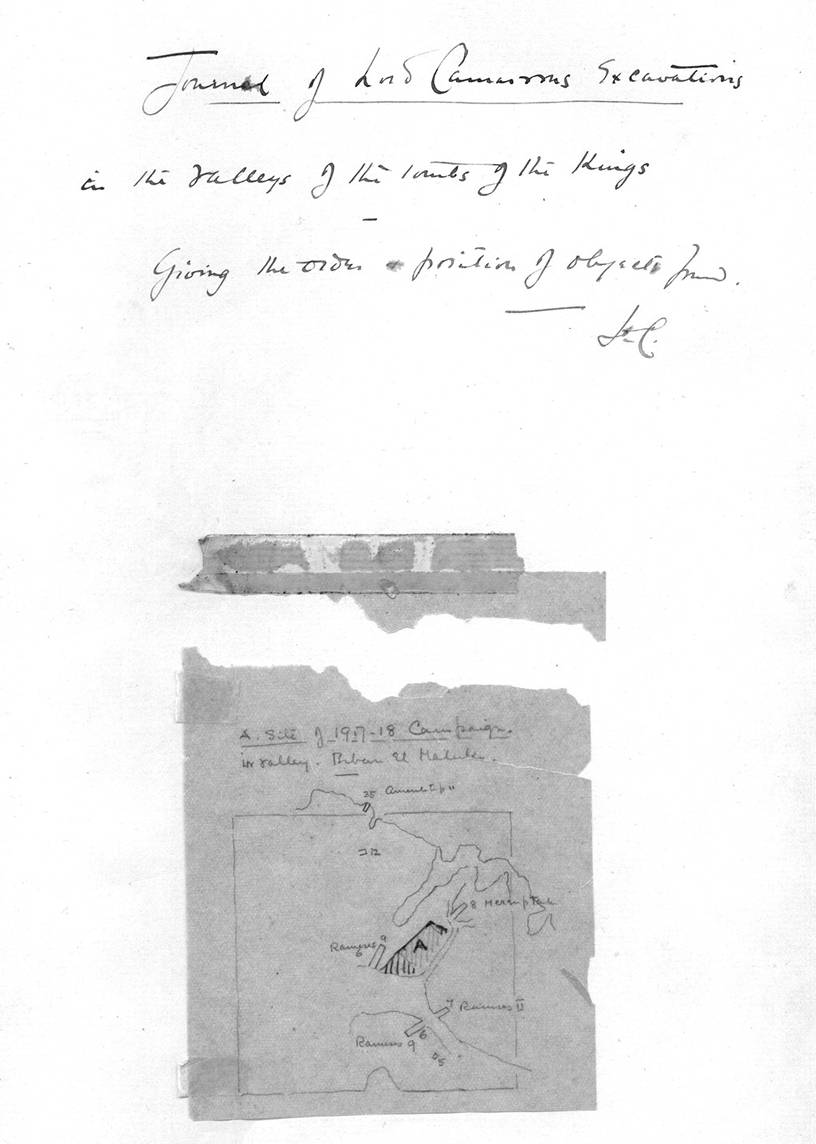 Journal of Lord Carnarvons Excavations
in the Valleys of the tombs of the Kings
Giving the order & position of objects found.
A. Site of 1917-18 Campaign.
in valley. Biban El Maluki.
35 Amenhetep II
12
8 Merenptah
9
Rameses
6
A
7 Rameses II
6
Rameses 9
5